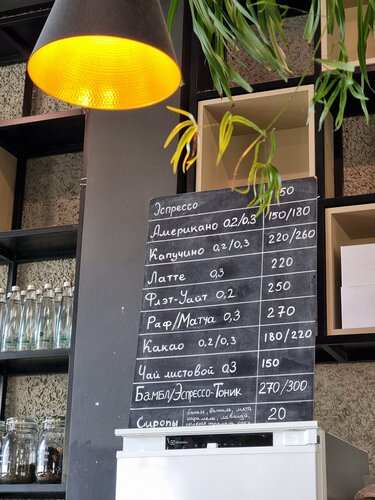 Эспрессо 150
Американо 0.2/0.3 150/180
Капучино 0.2/0.3 220/260
Латте 0.3 220
Флэт-Уайт 0.2 250
Раф/Матча 0,3 270
Какао 0.2/0.3 180/220
Чай листовой 0.3 150
Бамбл/Эспрессо-Тоник 270/300
Сиропы банан, ваниль, мята 20
карамель, лаванда,